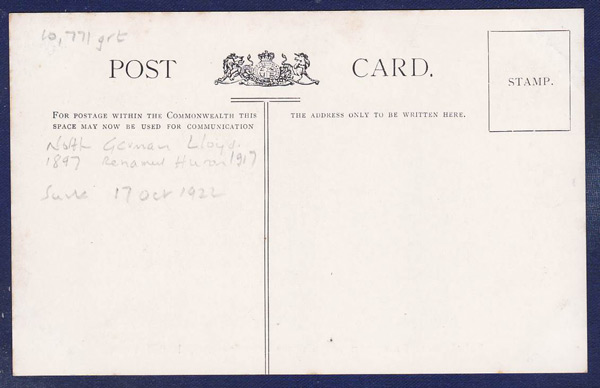 10,771 grt
POST CARD.
STAMP.
FOR POSTAGE WITHIN THE COMMONWEALTH THIS
SPACE MAY NOW BE USED FOR COMMUNICATION
THE ADDRESS ONLY TO BE WRITTEN HERE.
North German Lloyd.
1897 Renamed Huron 1917
17 Oct 1922